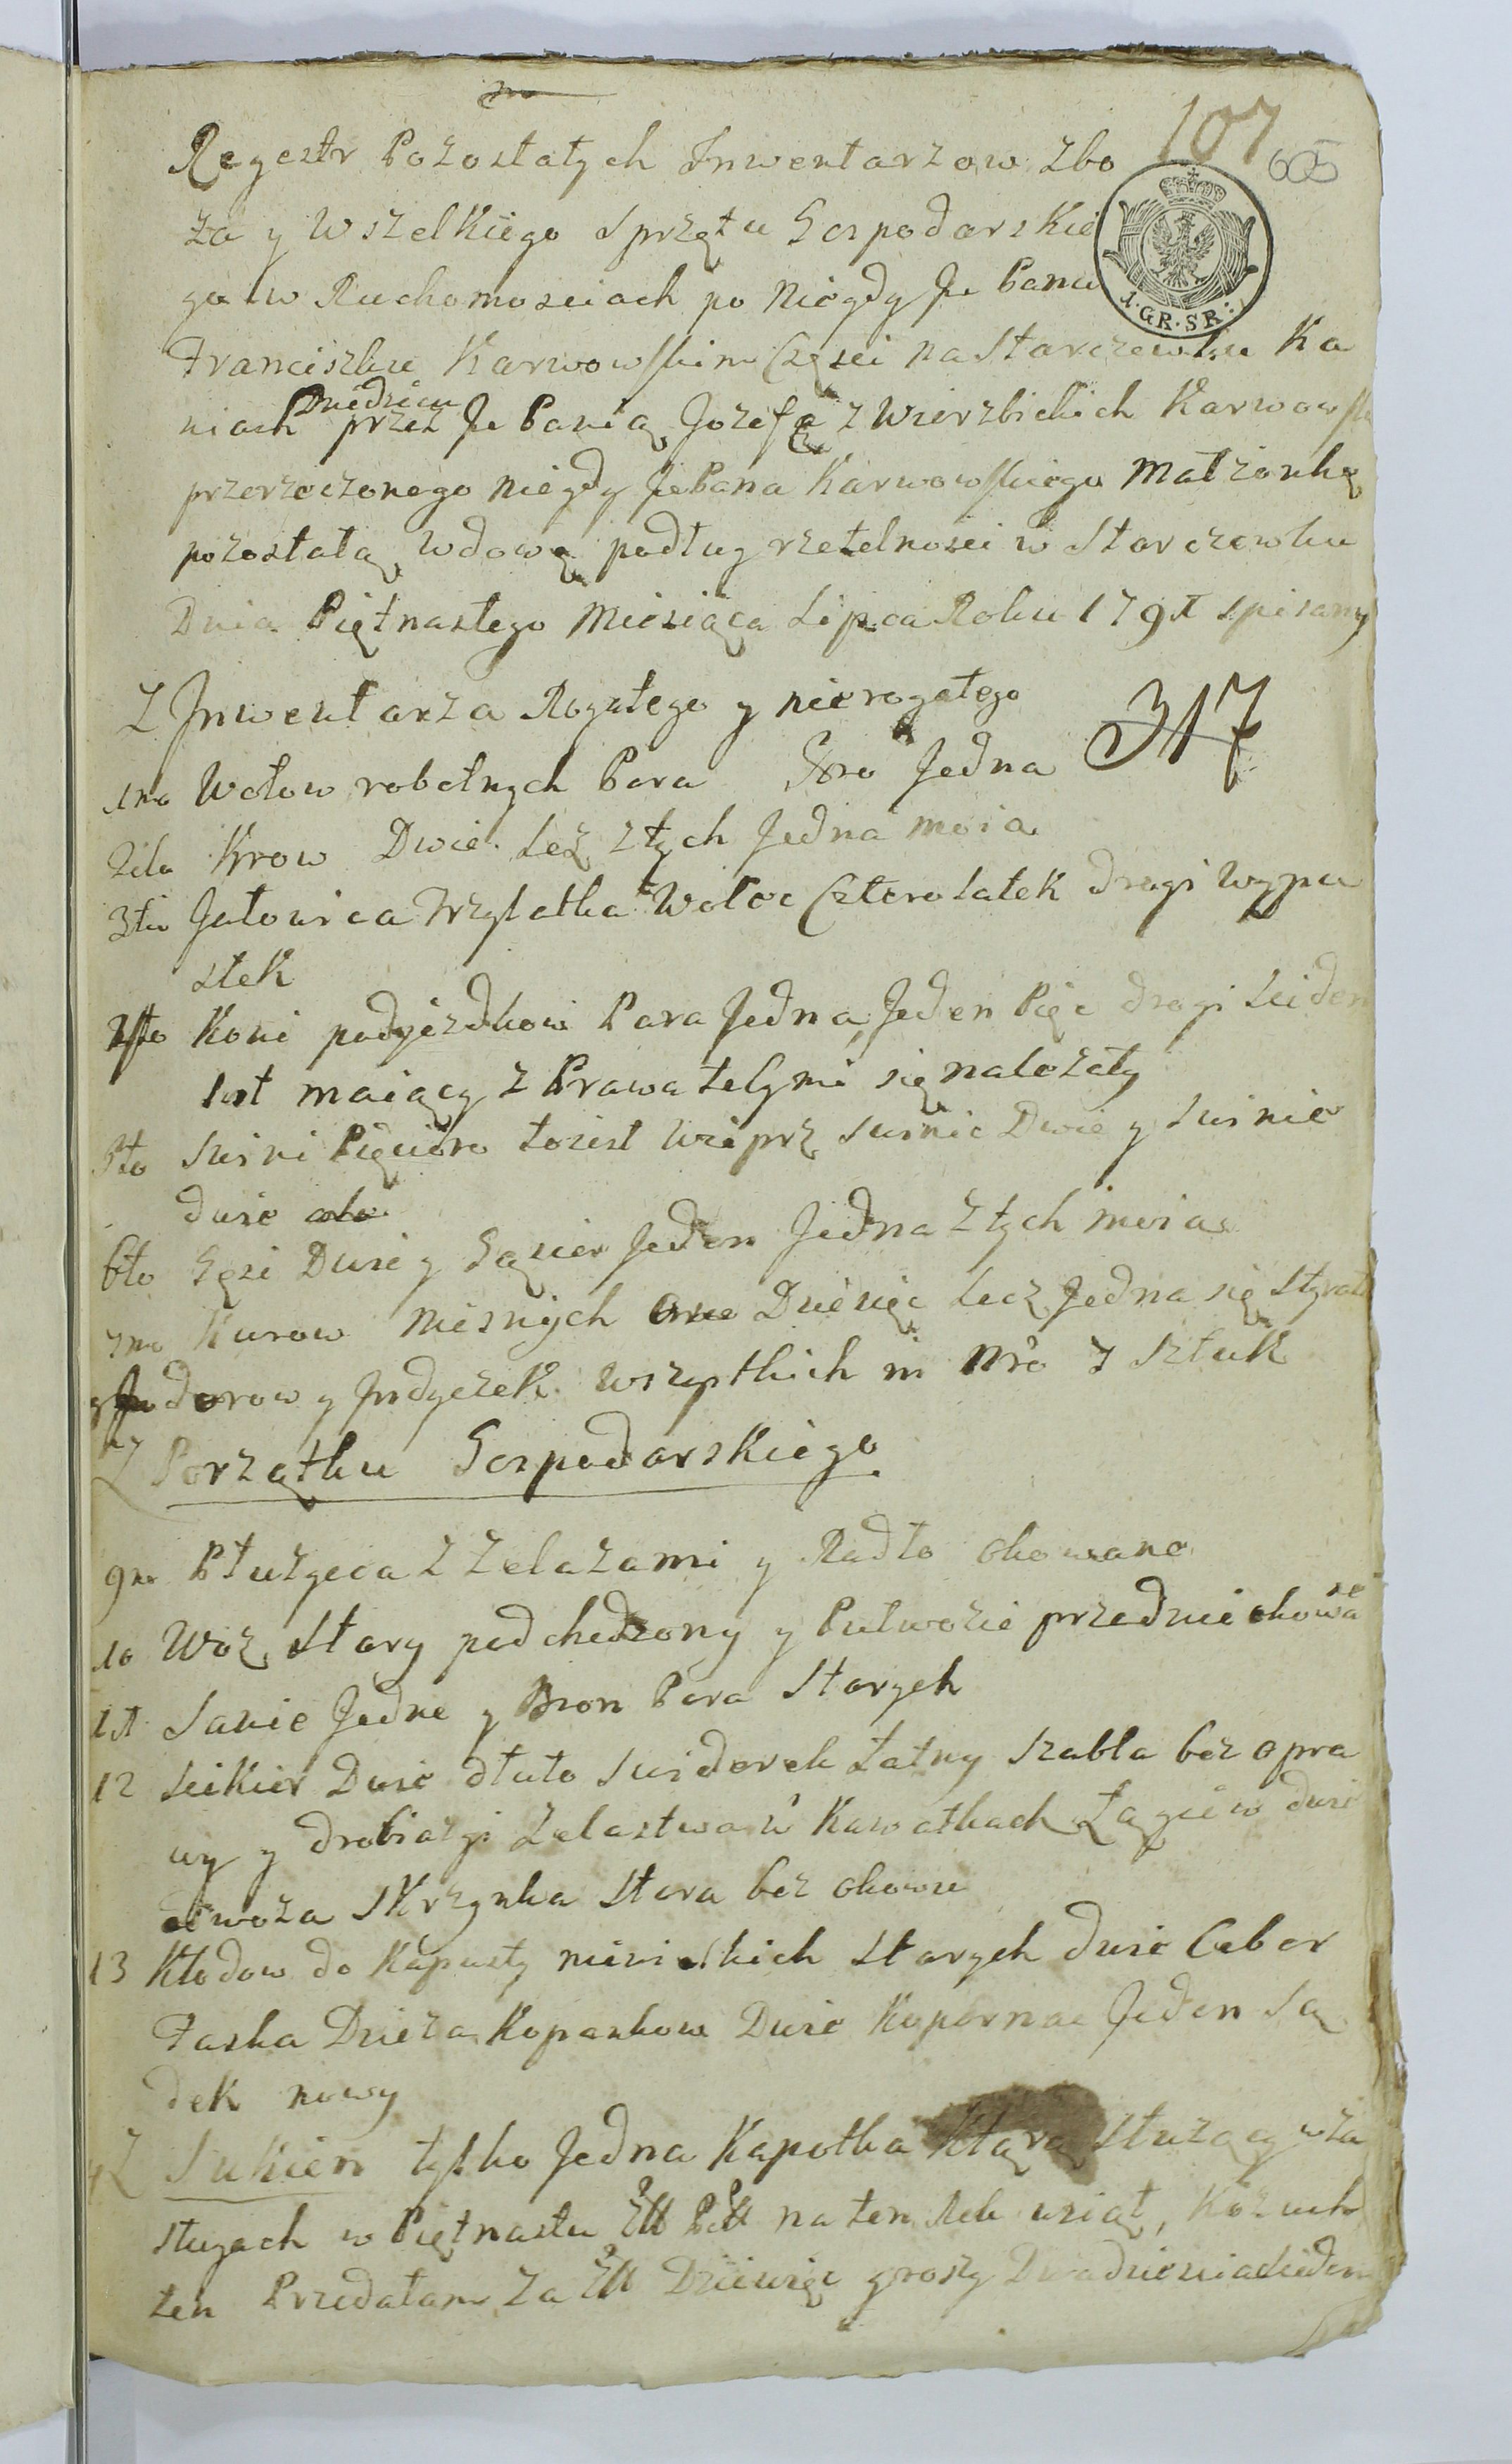 107
605
Regestr Pozostałych Inwentarzow zbo
za y Wszelkiego Sprzętu Gospodarskie
go w Ruchomosciach po Niegdy Je Panu
1. GR. SR:
Franciszku Karwowskim Częsci na Starczewku Ka
niach Dziedzicu przez Je Panią Jozefę z Wierzbickich Karwowsk
przerzeczonego niegdy JePana Karwowskiego Małzonkę
pozostałą wdowę podług rzetelnosci w Starczewku
Dnia Piętnastego Miesiąca Lipca Roku 1791 spisany
Z Inwentarza Rogatego y nierogatego
317
1mo Wołow robotnych Para Jedna
2do Krow Dwie. Lecz z tych Jedna moia
3tio Jałowica Trzylatka Wołoc Czterolatek drugi wypu
stek
4to Koni podjezdkow Para Jedna, Jeden Pięc drugi siedem
lat maiący z Prawa telymi się nalezały
5to Swini Pięcioro toiest Wieprz swinie Dwie y swinie
dwie
6to Gęsi Dwie y Gąsior Jeden Jedna z tych moia
7mo Kurow niesnych Dziesięc Lecz Jedna się stra
Jndorow y Jndyczek wszystkich in Nro 7 Sztuk
Z Porządku Gospodarskiego
9no Płuzyca z Zelazami y Radło okowane
10 Woz Stary podchodzony y Pułwozie przednie okowa
ne
11 Sanie Jedne y Bron Para Starych
12 Siekier Dwie dłuto swiderek Łatny Szabla bez opra
wy y drobiazgi Zelastwa w Kawałkach Łągiew dwie
woza Skrzynka Stara bez okowu
13 Kłodow do Kapusty niewielkich Starych dwie Ceber
Faska Dzieza Kopankow Dwie Kopernac Jeden Są
dek nowy
Z Sukien tylko Jedna Kapotka Którą Słuzący w za
sługach w Piętnastu na ten Rok wziął, Kozuch
ten Przedałam za Dziewięc groszy Dwadziesciasiedem